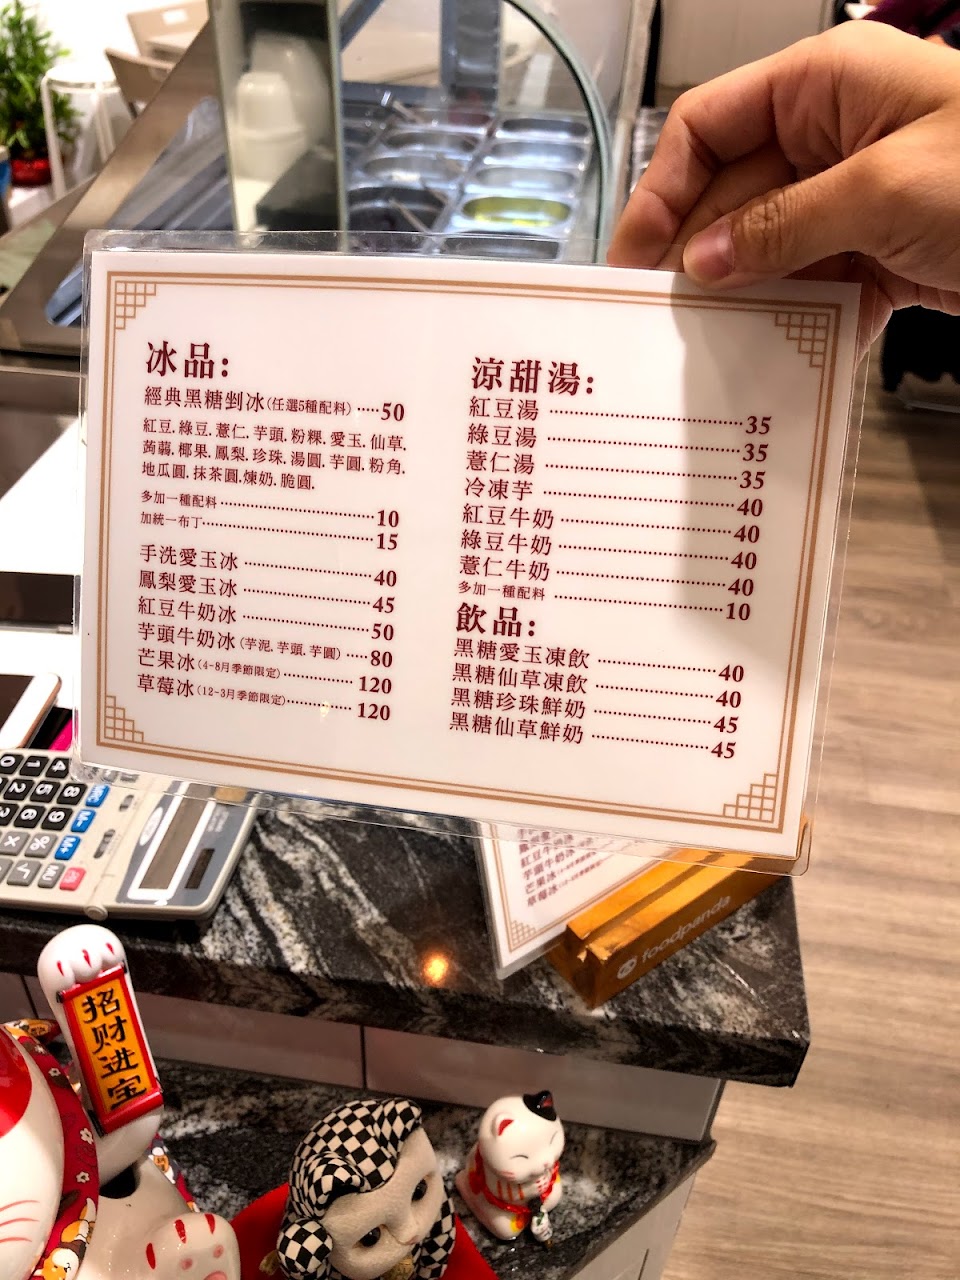 冰品:
經典黑糖剉冰(任選5種配料)·····50
紅豆.綠豆.薏仁.芋頭.粉粿.愛玉.仙草.
蒟蒻.椰果.鳳梨.珍珠.湯圓.芋圓.粉角.
地瓜圓.抹茶圓.煉奶.脆圓.
多加一種配料························10
加統一布丁·························15
手洗愛玉冰····················40
鳳梨愛玉冰····················45
紅豆牛奶冰····················50
芋頭牛奶冰(芋泥.芋頭.芋圓)·····80
芒果冰(4-8月季節限定)···············120
草莓冰(12-3月季節限定)··············120
涼甜湯:
紅豆湯······························35
綠豆湯······························35
薏仁湯······························35
冷凍芋······························40
紅豆牛奶····························40
綠豆牛奶····························40
薏仁牛奶····························40
多加一種配料························10
飲品:
黑糖愛玉凍飲····················40
黑糖仙草凍飲····················40
黑糖珍珠鮮奶····················45
黑糖仙草鮮奶····················45
紅豆牛奶冰
芋頭牛奶冰
芒果冰
草莓冰
foodpanda
招财进宝